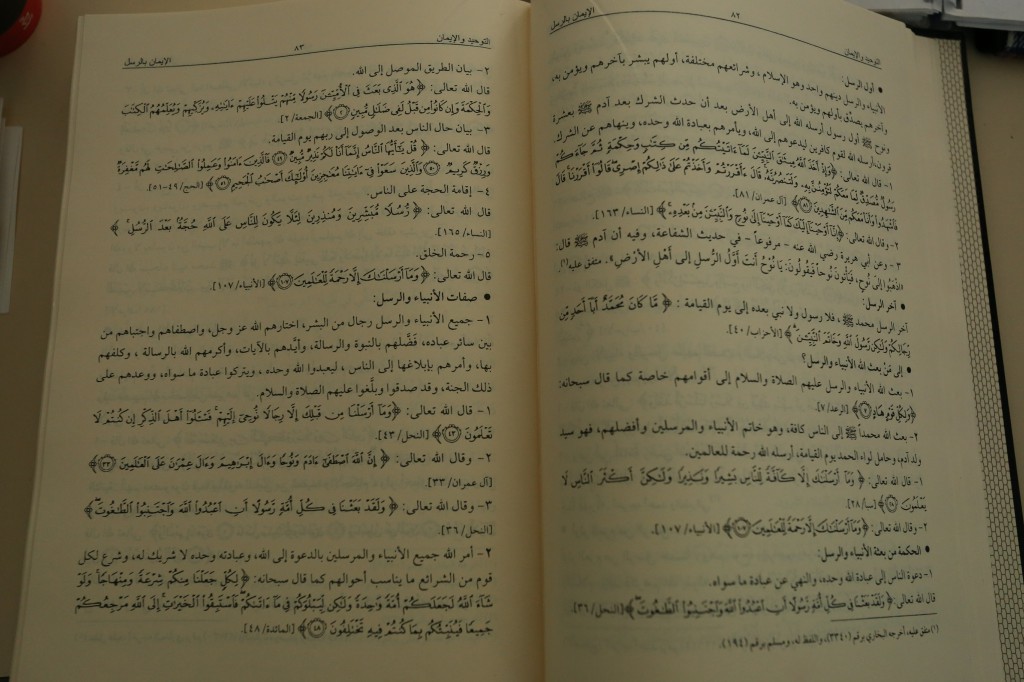 ٨٢
الإيمان بالرسل
التوحيد والإيمان
• أول الرسل:
الأنبياء والرسل دينهم واحد وهو الإسلام، وشرائعهم مختلفة، أولهم يبشر بآخرهم ويؤمن به،
وآخرهم يصدِّق بأولهم ويؤمن به.
ونوح ﷺ أول رسول أرسله الله إلى أهل الأرض بعد أن حدث الشرك بعد آدم ﷺ بعشرة
قرون، أرسله الله لقوم كافرين ليدعوهم إلى الله، ويأمرهم بعبادة الله وحده، وينهاهم عن الشرك.
١- قال الله تعالى: ﴿وَإِذْ أَخَذَ ٱللَّهُ مِيثَٰقَ ٱلنَّبِيِّـۧنَ لَمَآ ءَاتَيْتُكُم مِّن كِتَٰبٍ وَحِكْمَةٍ ثُمَّ جَآءَكُمْ
رَسُولٌ مُّصَدِّقٌ لِّمَا مَعَكُمْ لَتُؤْمِنُنَّ بِهِۦ وَلَتَنصُرُنَّهُۥ قَالَ ءَأَقْرَرْتُمْ وَأَخَذْتُمْ عَلَىٰ ذَٰلِكُمْ إِصْرِى قَالُوٓا۟ أَقْرَرْنَا قَالَ
فَٱشْهَدُوا۟ وَأَنَا۠ مَعَكُم مِّنَ ٱلشَّٰهِدِينَ ٨١﴾ [آل عمران/ ٨١].
٢- وقال الله تعالى: ﴿إِنَّآ أَوْحَيْنَآ إِلَيْكَ كَمَآ أَوْحَيْنَآ إِلَىٰ نُوحٍ وَٱلنَّبِيِّـۧنَ مِنۢ بَعْدِهِۦ﴾ [النساء/ ١٦٣].
٣- وعن أبي هريرة رضي الله عنه - مرفوعاً - في حديث الشفاعة، وفيه أن آدم ﷺ قال:
«اذْهَبُوا إِلَى نُوحٍ، فَيَأْتُونَ نُوحاً فَيَقُولُونَ: يَا نُوحُ أَنْتَ أَوَّلُ الرُّسلِ إلى أَهْلِ الأَرْضِ». متفق عليه(١).
• آخر الرسل:
آخر الرسل محمد ﷺ، فلا رسول ولا نبي بعده إلى يوم القيامة: ﴿مَّا كَانَ مُحَمَّدٌ أَبَآ أَحَدٍ مِّن
رِّجَالِكُمْ وَلَٰكِن رَّسُولَ ٱللَّهِ وَخَاتَمَ ٱلنَّبِيِّـۧنَ﴾ [الأحزاب/ ٤٠].
• إلى مَنْ بعث الله الأنبياء والرسل؟
١- بعث الله الأنبياء والرسل عليهم الصلاة والسلام إلى أقوامهم خاصة كما قال سبحانه:
﴿وَلِكُلِّ قَوْمٍ هَادٍ ٧﴾ [الرعد/ ٧].
٢- بعث الله محمداً ﷺ إلى الناس كافة، وهو خاتم الأنبياء والمرسلين وأفضلهم، فهو سيد
ولد آدم، وحامل لواء الحمد يوم القيامة، أرسله الله رحمة للعالمين.
١- قال الله تعالى: ﴿وَمَآ أَرْسَلْنَٰكَ إِلَّا كَآفَّةً لِّلنَّاسِ بَشِيرًا وَنَذِيرًا وَلَٰكِنَّ أَكْثَرَ ٱلنَّاسِ لَا
يَعْلَمُونَ ٢٨﴾ [سبأ/ ٢٨].
٢- وقال الله تعالى: ﴿وَمَآ أَرْسَلْنَٰكَ إِلَّا رَحْمَةً لِّلْعَٰلَمِينَ ١٠٧﴾ [الأنبياء/ ١٠٧].
• الحكمة من بعثة الأنبياء والرسل:
١- دعوة الناس إلى عبادة الله وحده، والنهي عن عبادة ما سواه.
قال الله تعالى: ﴿وَلَقَدْ بَعَثْنَا فِى كُلِّ أُمَّةٍ رَّسُولًا أَنِ ٱعْبُدُوا۟ ٱللَّهَ وَٱجْتَنِبُوا۟ ٱلطَّٰغُوتَ﴾ [النحل/ ٣٦].
(١) متفق عليه، أخرجه البخاري برقم (٣٣٤٠)، واللفظ له، ومسلم برقم (١٩٤).
التوحيد والإيمان
٨٣
الإيمان بالرسل
٢- بيان الطريق الموصل إلى الله.
قال الله تعالى: ﴿هُوَ ٱلَّذِى بَعَثَ فِى ٱلْأُمِّيِّـۧنَ رَسُولًا مِّنْهُمْ يَتْلُوا۟ عَلَيْهِمْ ءَايَٰتِهِۦ وَيُزَكِّيهِمْ وَيُعَلِّمُهُمُ ٱلْكِتَٰبَ
وَٱلْحِكْمَةَ وَإِن كَانُوا۟ مِن قَبْلُ لَفِى ضَلَٰلٍ مُّبِينٍ ٢﴾ [الجمعة/ ٢].
٣- بيان حال الناس بعد الوصول إلى ربهم يوم القيامة.
قال الله تعالى: ﴿قُلْ يَٰٓأَيُّهَا ٱلنَّاسُ إِنَّمَآ أَنَا۠ لَكُمْ نَذِيرٌ مُّبِينٌ ٤٩ فَٱلَّذِينَ ءَامَنُوا۟ وَعَمِلُوا۟ ٱلصَّٰلِحَٰتِ لَهُم مَّغْفِرَةٌ
وَرِزْقٌ كَرِيمٌ ٥٠ وَٱلَّذِينَ سَعَوْا۟ فِىٓ ءَايَٰتِنَا مُعَٰجِزِينَ أُو۟لَٰٓئِكَ أَصْحَٰبُ ٱلْجَحِيمِ ٥١﴾ [الحج/ ٤٩-٥١].
٤- إقامة الحجة على الناس.
قال الله تعالى: ﴿رُّسُلًا مُّبَشِّرِينَ وَمُنذِرِينَ لِئَلَّا يَكُونَ لِلنَّاسِ عَلَى ٱللَّهِ حُجَّةٌۢ بَعْدَ ٱلرُّسُلِ﴾
[النساء/ ١٦٥].
٥- رحمة الخلق.
قال الله تعالى: ﴿وَمَآ أَرْسَلْنَٰكَ إِلَّا رَحْمَةً لِّلْعَٰلَمِينَ ١٠٧﴾ [الأنبياء/ ١٠٧].
• صفات الأنبياء والرسل:
١- جميع الأنبياء والرسل رجال من البشر، اختارهم الله عز وجل، واصطفاهم واجتباهم من
بين سائر عباده، فَضَّلهم بالنبوة والرسالة، وأيَّدهم بالآيات، وأكرمهم الله بالرسالة، وكلفهم
بها، وأمرهم بإبلاغها إلى الناس، ليعبدوا الله وحده، ويتركوا عبادة ما سواه، ووعدهم على
ذلك الجنة، وقد صدقوا وبلَّغوا عليهم الصلاة والسلام.
١- قال الله تعالى: ﴿وَمَآ أَرْسَلْنَا مِن قَبْلِكَ إِلَّا رِجَالًا نُّوحِىٓ إِلَيْهِمْ فَسْـَٔلُوٓا۟ أَهْلَ ٱلذِّكْرِ إِن كُنتُمْ لَا
تَعْلَمُونَ ٤٣﴾ [النحل/ ٤٣].
٢- وقال الله تعالى: ﴿إِنَّ ٱللَّهَ ٱصْطَفَىٰٓ ءَادَمَ وَنُوحًا وَءَالَ إِبْرَٰهِيمَ وَءَالَ عِمْرَٰنَ عَلَى ٱلْعَٰلَمِينَ ٣٣﴾
[آل عمران/ ٣٣].
٣- وقال الله تعالى: ﴿وَلَقَدْ بَعَثْنَا فِى كُلِّ أُمَّةٍ رَّسُولًا أَنِ ٱعْبُدُوا۟ ٱللَّهَ وَٱجْتَنِبُوا۟ ٱلطَّٰغُوتَ﴾
[النحل/ ٣٦].
٢- أمر الله جميع الأنبياء والمرسلين بالدعوة إلى الله، وعبادته وحده لا شريك له، وشرع لكل
قوم من الشرائع ما يناسب أحوالهم كما قال سبحانه: ﴿لِكُلٍّ جَعَلْنَا مِنكُمْ شِرْعَةً وَمِنْهَاجًا وَلَوْ
شَآءَ ٱللَّهُ لَجَعَلَكُمْ أُمَّةً وَٰحِدَةً وَلَٰكِن لِّيَبْلُوَكُمْ فِى مَآ ءَاتَىٰكُمْ فَٱسْتَبِقُوا۟ ٱلْخَيْرَٰتِ إِلَى ٱللَّهِ مَرْجِعُكُمْ
جَمِيعًا فَيُنَبِّئُكُم بِمَا كُنتُمْ فِيهِ تَخْتَلِفُونَ ٤٨﴾ [المائدة/ ٤٨].